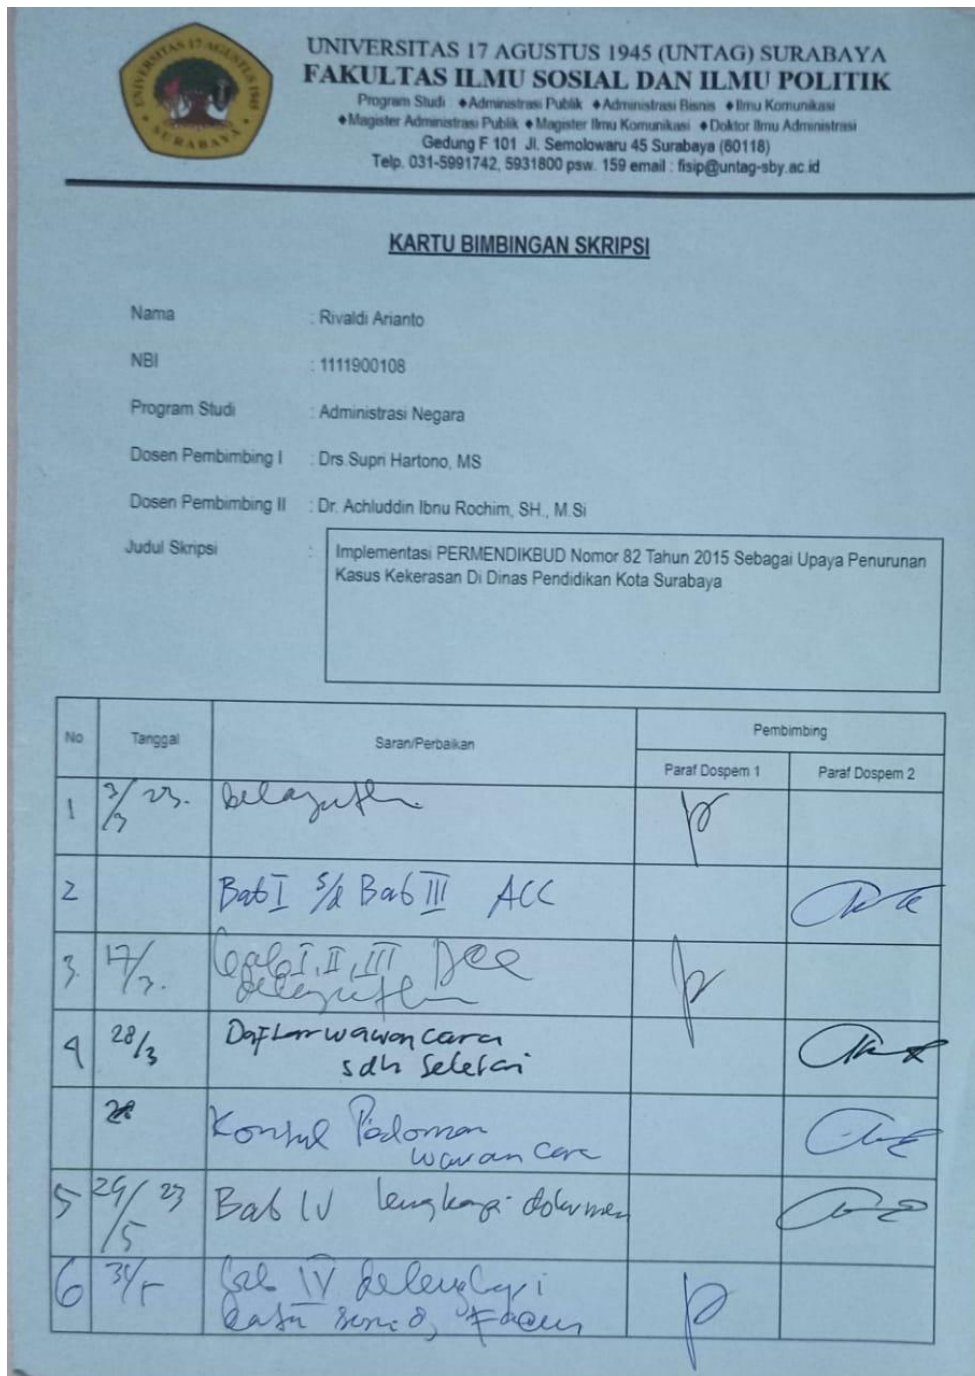 UNIVERSITAS 17 AGUSTUS 1945
SURABAYA
UNIVERSITAS 17 AGUSTUS 1945 (UNTAG) SURABAYA
FAKULTAS ILMU SOSIAL DAN ILMU POLITIK
Program Studi : ◆Administrasi Publik ◆Administrasi Bisnis ◆Ilmu Komunikasi
◆Magister Administrasi Publik ◆Magister Ilmu Komunikasi ◆Doktor Ilmu Administrasi
Gedung F 101 Jl. Semolowaru 45 Surabaya (60118)
Telp. 031-5991742, 5931800 psw. 159 email : fisip@untag-sby.ac.id
KARTU BIMBINGAN SKRIPSI
Nama : Rivaldi Arianto
NBI : 1111900108
Program Studi : Administrasi Negara
Dosen Pembimbing I : Drs.Supri Hartono, MS
Dosen Pembimbing II : Dr. Achluddin Ibnu Rochim, SH., M.Si
Judul Skripsi : Implementasi PERMENDIKBUD Nomor 82 Tahun 2015 Sebagai Upaya Penurunan
Kasus Kekerasan Di Dinas Pendidikan Kota Surabaya
No Tanggal Saran/Perbaikan Pembimbing
Paraf Dospem 1 Paraf Dospem 2
1 3/3 23.
2 Bab I s/d Bab III ACC
3. 17/3. Bab I, II, III Acc
4 28/3 Daftar wawancara
sdh selesai
28 Konsul Pedoman
wawancara
5 29/5 23 Bab IV lengkapi dokumen
6 Bab IV dilengkapi